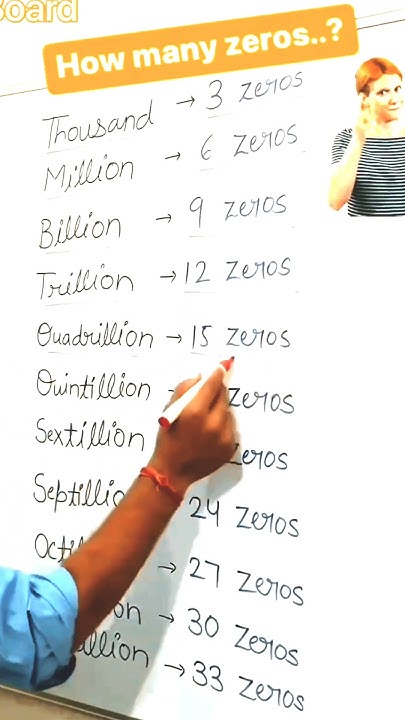 Board
How many zeros..?
Thousand → 3 zeros
Million → 6 zeros
Billion → 9 zeros
Trillion → 12 zeros
Quadrillion → 15 zeros
Quintillion zeros
Sextillion zeros
24 zeros
→ 27 zeros
→ 30 zeros
→ 33 zeros